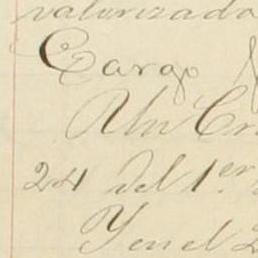 valorizada
Cargo
Un Cr
24 del 1er
Y en el 2